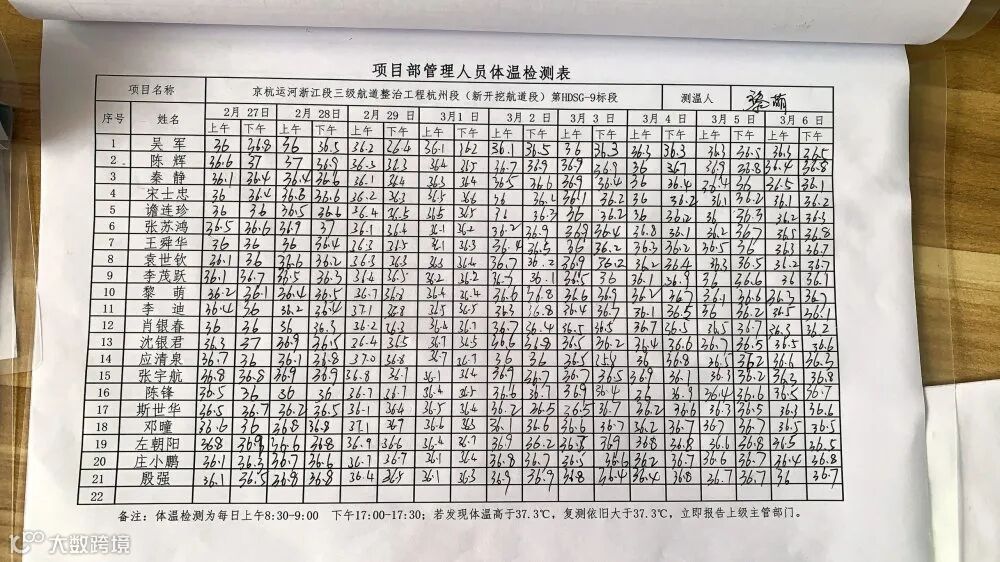 项目部管理人员体温检测表
项目名称 京杭运河浙江段三级航道整治工程杭州段（新开挖航道段）第HDSG-9标段 测温人 黎萌
序号 姓名 2月27日 2月28日 2月29日 3月1日 3月2日 3月3日 3月4日 3月5日 3月6日
上午 下午 上午 下午 上午 下午 上午 下午 上午 下午 上午 下午 上午 下午 上午 下午 上午 下午
1 吴军 36 36.8 36 36.5 36.2 36.1 36.1 36.5 36 36.3 36.3 36.3 36.3 36.5 36.3 36.5
2 陈辉 36.6 37 37 36.9 36.3 36.4 36.5 36.7 36.9 36.9 36 36.9 36.8 36.4 36.8
3 秦静 36.1 36.4 36.4 36.6 36.1 36.4 36.3 36.4 36.5 36.6 36.9 36.4 36 36.4 36.4 36 36.5 36.1
4 宋士忠 36 36.4 36.8 36.6 36.2 36.3 36.5 36.6 36 36.2 36.1 36.2 36 36.2 36.1 36.2 36.1 36.2
5 谵连珍 36 36 36.5 36.6 36.4 36.5 36.5 36 36.3 36 36.2 36 36.2 36 36.3 36.2 36.3
6 张苏鸿 36.5 36.6 36.9 37 36.1 36.4 36.1 36.2 36.2 36.9 36.9 36.4 36.8 36.1 36.2 36.7 36.5 36.8
7 王舜华 36 36 36 36.4 36.3 36.5 36.1 36.3 36.4 36.5 36 36.2 36.3 36.2 36.5 36 36.3 36.7
8 袁世钦 36.1 36 36.6 36.2 36.3 36.3 36.3 36.4 36.7 36.2 36.9 36.2 36.2 36.4 36.3 36.5 36.2 36.7
9 李茂跃 36.1 36.7 36.5 36.3 36.4 36.5 36.2 36.2 36.1 36.5 36 36.1 36.9 36 36.6 36 36.1
10 黎萌 36.2 36.1 36.4 36.5 36.7 36.8 36.4 36.4 36.6 36.8 36.6 36.9 36.2 36.7 36.1 36.6 36.3 36.7
11 李迪 36.4 36 36.2 36.4 37.1 36.8 36.5 36.5 36.3 36.8 36.4 36.7 36.1 36.5 36 36.2 36.5 36.1
12 肖银春 36 36 36 36.3 36.2 36.3 36.4 36.7 36.7 36.4 36.5 36.5 36.7 36.5 36.5 36.7 36.3 36.2
13 沈银君 36.3 37 36.9 36.5 36.4 36.5 36.7 36.5 36.6 36.8 36.5 36.2 36.4 36.6 36.7 36.5 36.5 36.6
14 应清泉 36.7 36 36.1 36.8 37.0 36.8 36.7 36.7 36 36 36.5 36 36.8 36.5 36.2 36.6 36.3
15 张宇航 36.8 36.8 36.9 36.9 36.8 36.7 36.1 36.4 36.9 36.7 36.7 36.5 36.9 36.1 36.3 36.2 36.3 36.8
16 陈锋 36.5 36 36 36 36.7 36.7 36.4 36.5 36.6 36.7 36.9 36.4 36 36.9 36.4 36.6 36.5 36.7
17 斯世华 36.5 36.7 36.2 36.5 36.1 36.4 36.5 36.4 36.2 36.5 36.5 36.7 36.2 36.6 36.3 36.5 36.3 36.6
18 邓曈 36.6 36 36.8 36.8 37.1 36.7 36.6 36.5 36.1 36.6 36.6 36.7 36.2 36.7 36.7 36.7 36.5 36.5
19 左朝阳 36.8 36.9 36.6 36.8 36.9 36.6 36.4 36.7 36.9 36.2 36.5 36.9 36.8 36.8 36.6 36.8 36.5 36.5
20 庄小鹏 36.1 36.3 36.7 36.6 36.7 36.7 36.1 36.4 36.8 36.7 36.5 36.6 36.2 36.7 36.6 36.7 36.4 36.8
21 殷强 36.1 36.5 36.8 36.8 36.4 36.5 36.1 36.3 36.9 36.9 36.8 36.4 36.4 36.8 36.7 36.7 36 36.7
22
备注：体温检测为每日上午8:30-9:00 下午17:00-17:30；若发现体温高于37.3℃，复测依旧大于37.3℃，立即报告上级主管部门。
大数跨境